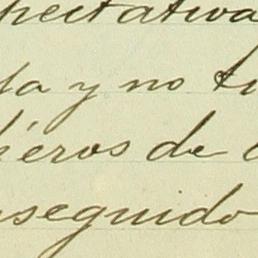 pectativa
da y no tu
héros de
nseguido